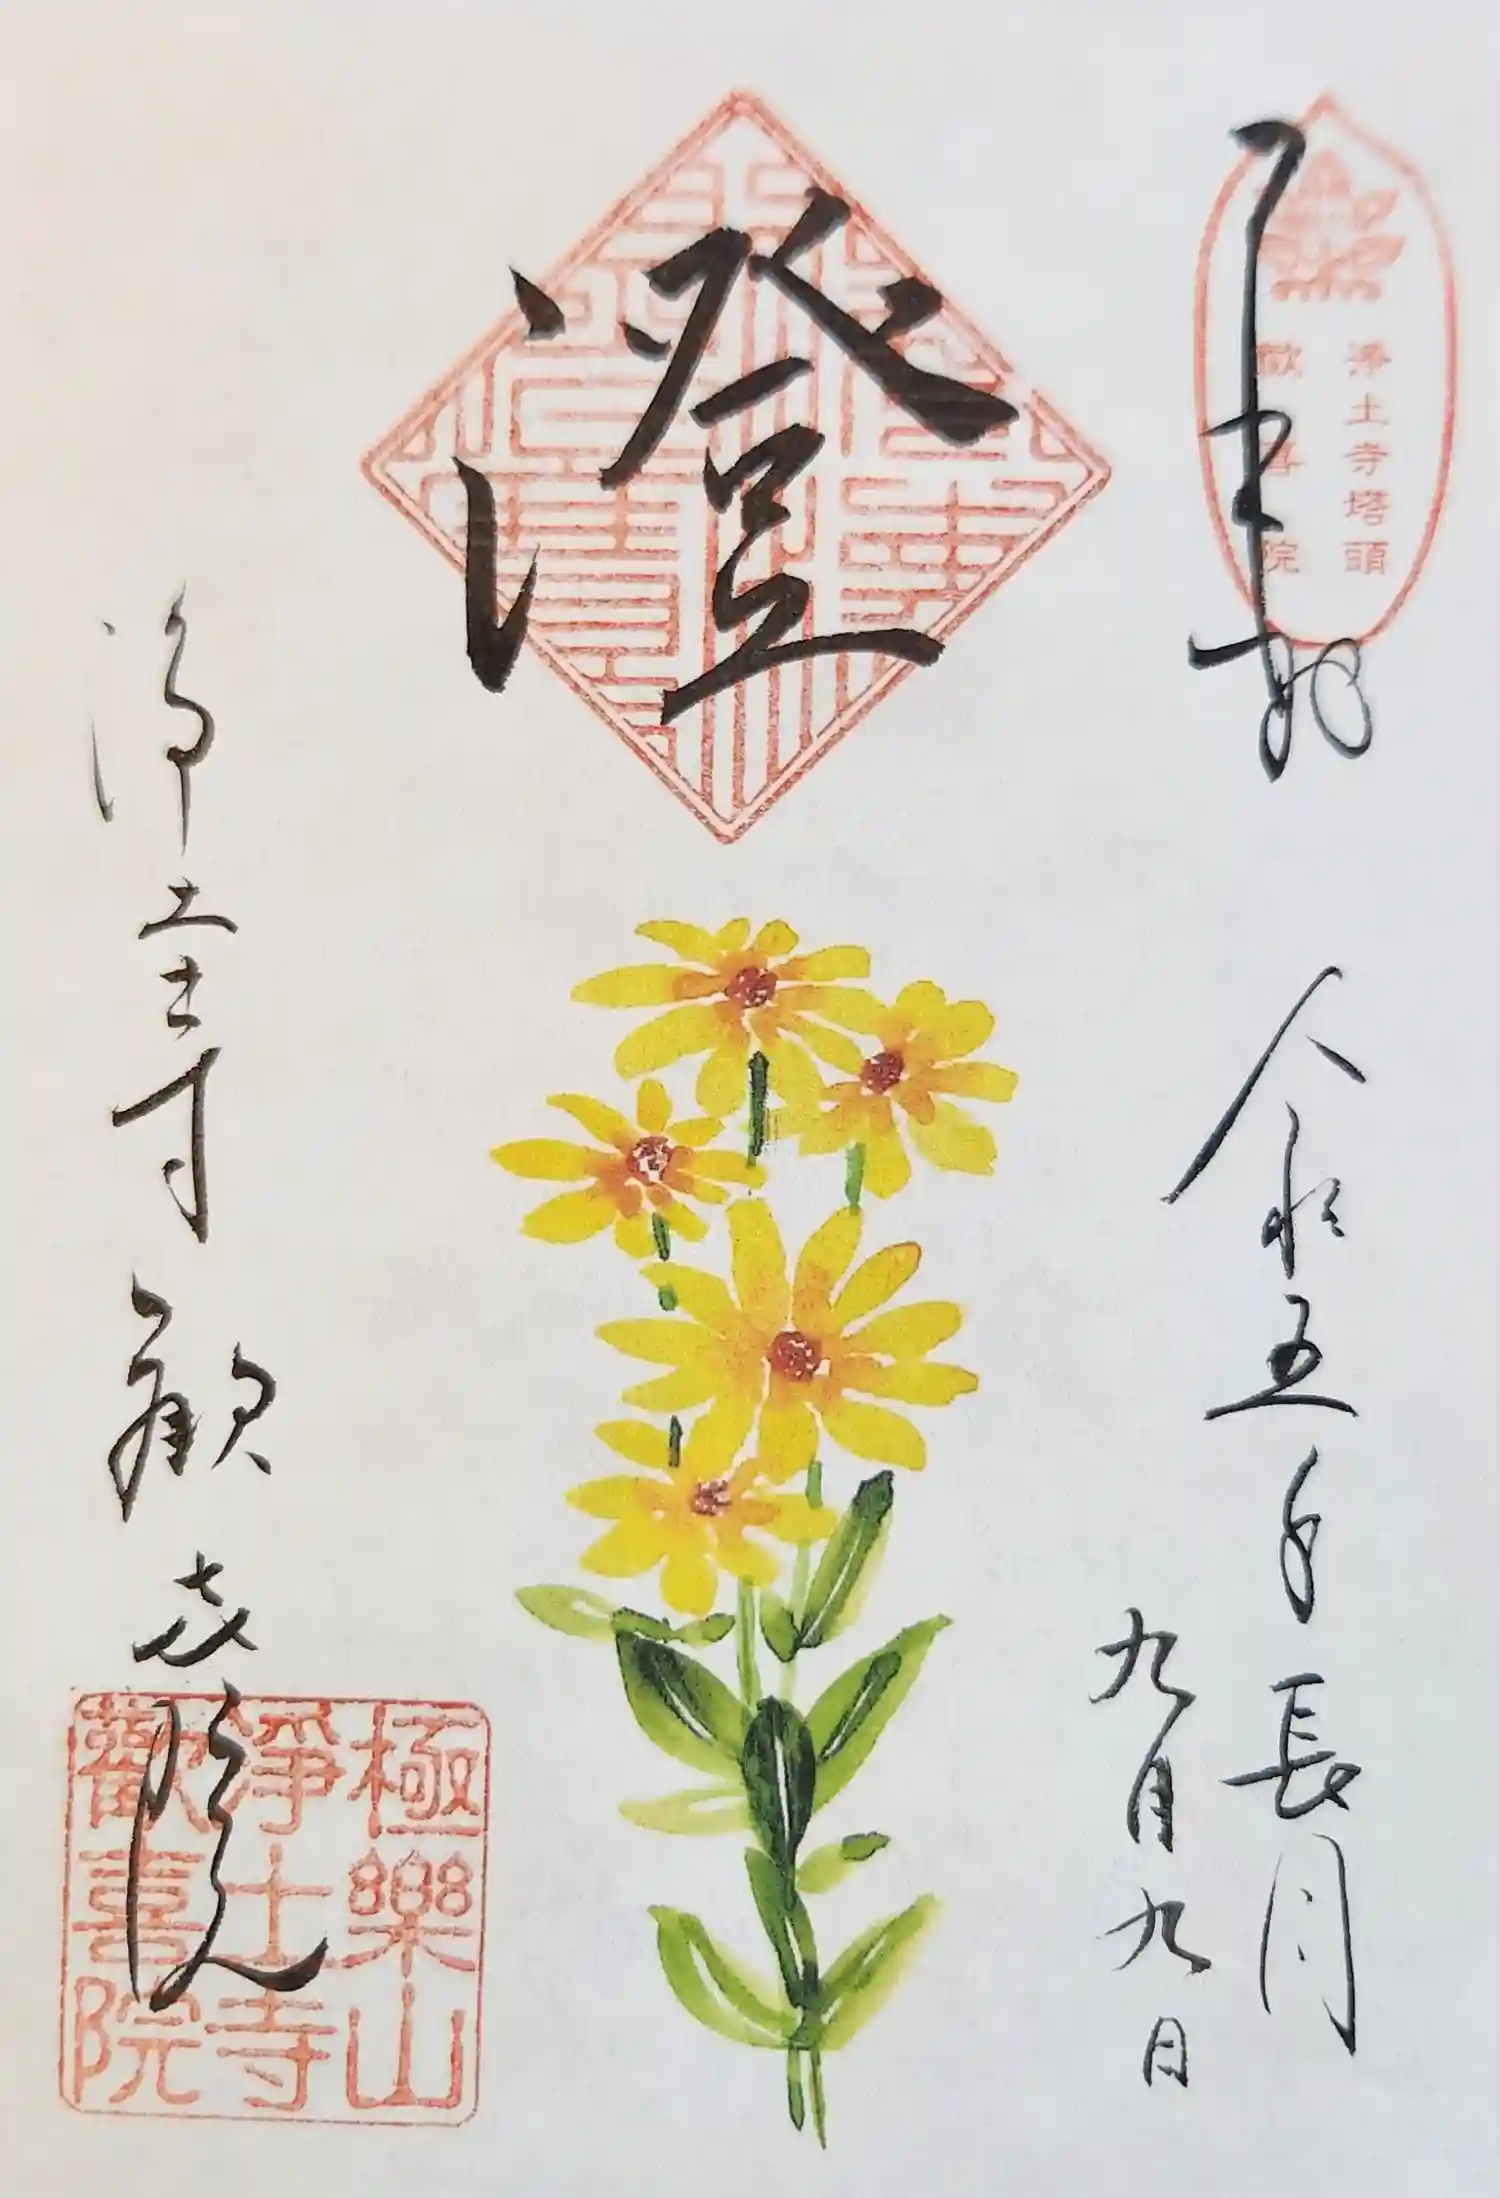 奉拝
淨土寺塔頭
歓喜院
令和五年長月
九月九日
澄
浄土寺歓喜院
極樂山
淨土寺
歡喜院